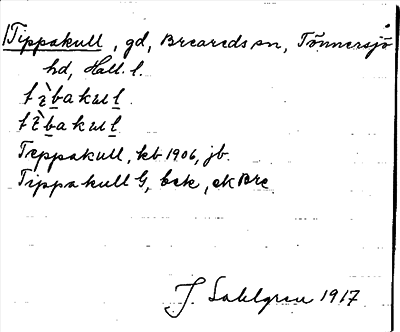 Tippakull, gd, Breareds sn, Tönnersjö
hd, Hall. l.
tìbakul
tèbakul
Teppakull, kb 1906, jb.
Tippakull G, bek, ek Bre
J. Sahlgren 1917